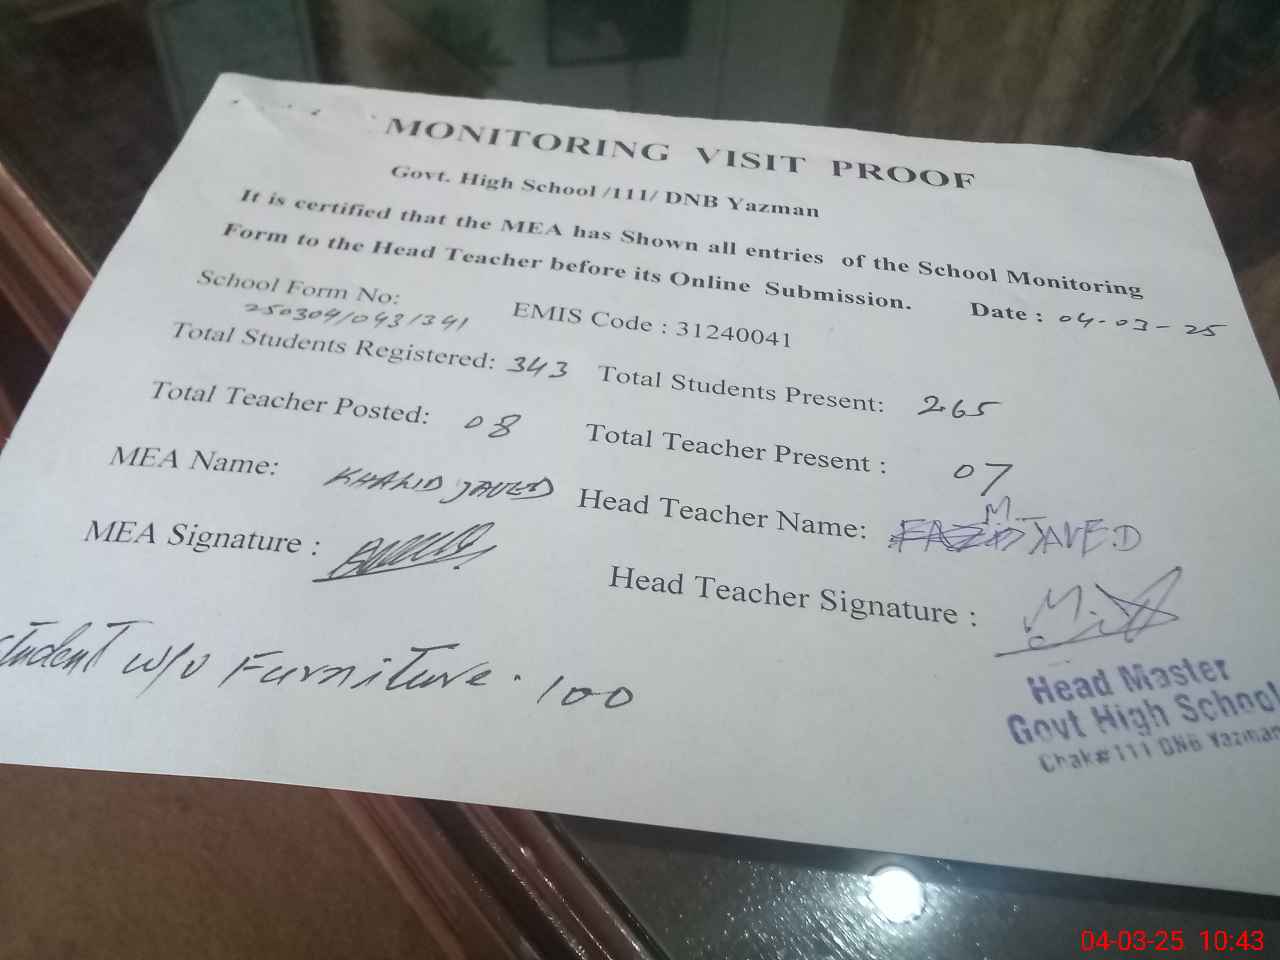 MONITORING VISIT PROOF
Govt. High School /111/ DNB Yazman
It is certified that the MEA has Shown all entries of the School Monitoring
Form to the Head Teacher before its Online Submission. Date : 04-03-25
School Form No: EMIS Code : 31240041
250304/043/341
Total Students Registered: 343 Total Students Present: 265
Total Teacher Posted: 08 Total Teacher Present : 07
MEA Name: KHALID JAVED Head Teacher Name: M. JAVED
MEA Signature : Head Teacher Signature :
Student w/o Furniture . 100
Head Master
Govt High School
Chak# 111 DNB Yazman
04-03-25 10:43